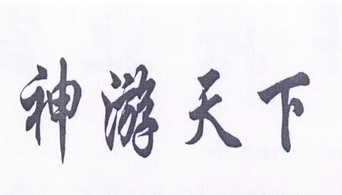 神游天下